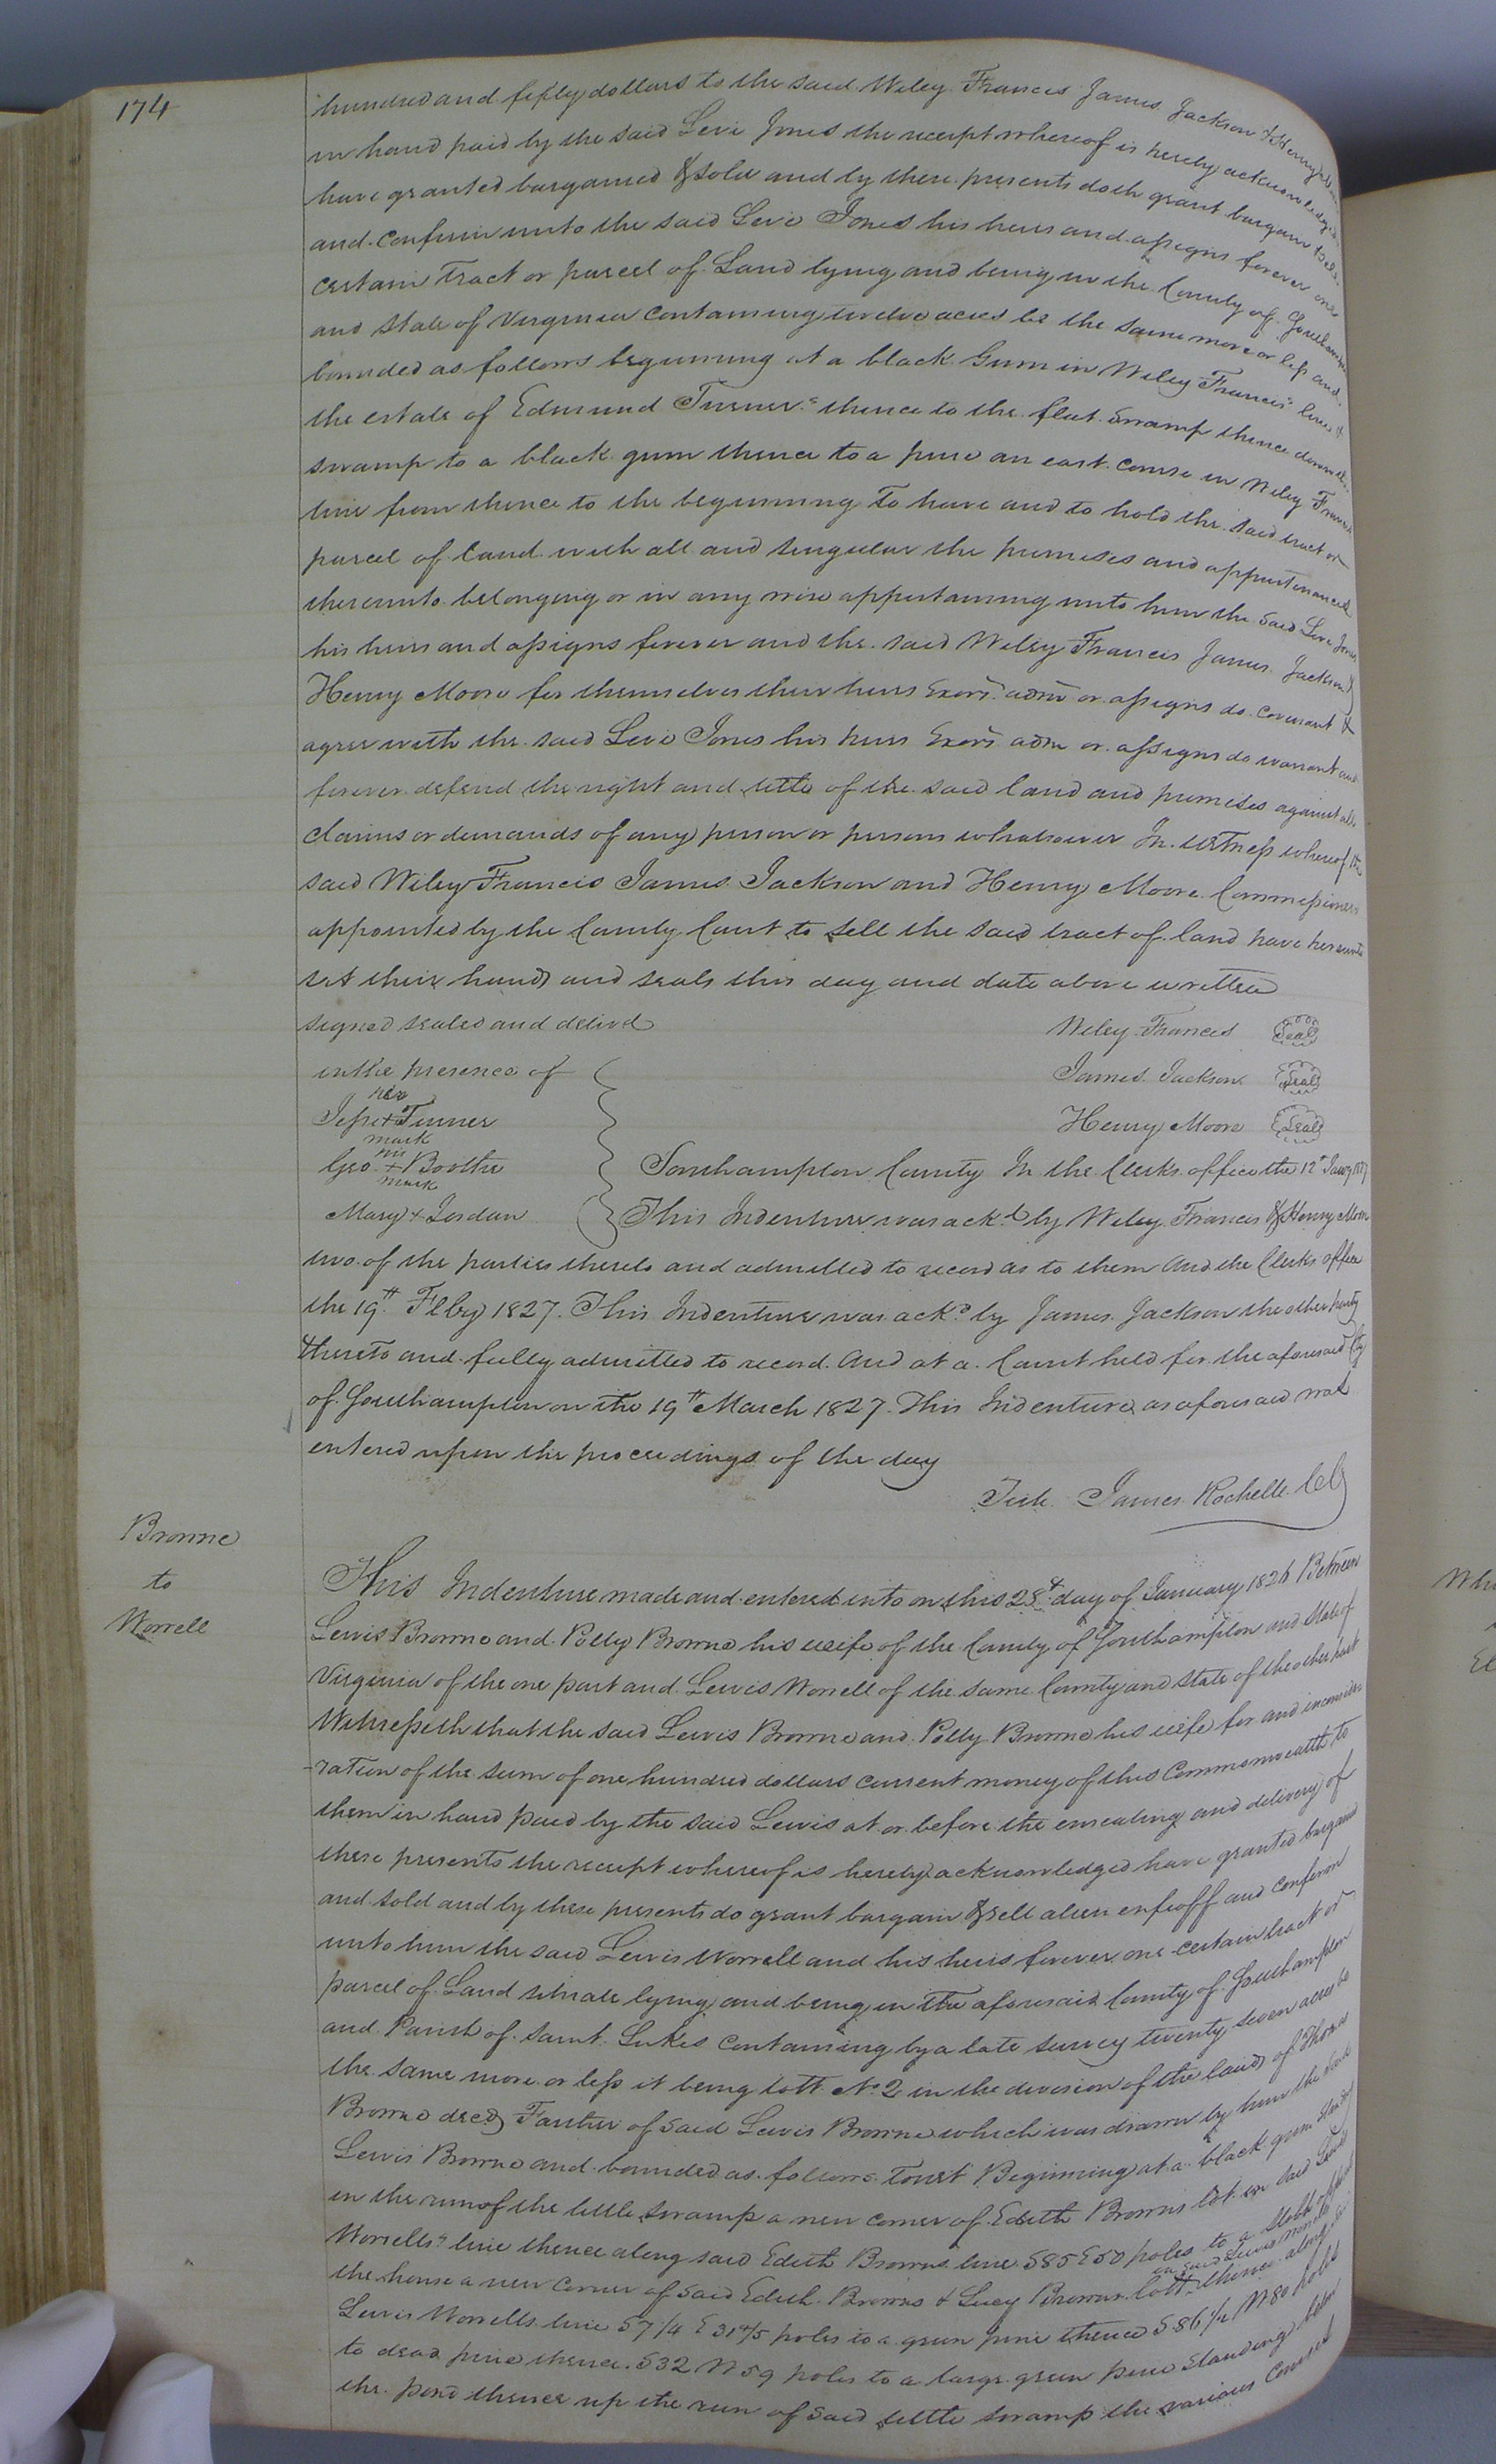 174
hundred and fifty dollars to the said Wiley Francis James Jackson & Henry
in hand paid by the said Levi Jones the receipt whereof is hereby acknowledged
have granted bargained & sold and by these presents doth grant bargain & sell
and confirm unto the said Levi Jones his heirs and assigns forever one
certain Tract or parcel of Land lying and being in the County of Southampton
and State of Virginia containing twelve acres be the same more or less and
bounded as follows beginning at a black Gum in Wiley Francis's line &
the estate of Edmund Turner's thence to the flat Swamp thence down the
swamp to a black gum thence to a pine an east course in Wiley Francis
line from thence to the beginning To have and to hold the said tract or
parcel of land with all and singular the premises and appurtenances
thereunto belonging or in any wise appertaining unto him the said Levi Jones
his heirs and assigns forever and the said Wiley Francis James Jackson &
Henry Moore for themselves their heirs Exors admr or assigns do covenant &
agree with the said Levi Jones his heirs Exors adm or assigns do warrant and
forever defend the right and title of the said land and premises against all
claims or demands of any person or persons whatsoever In witness whereof the
said Wiley Francis James Jackson and Henry Moore Commissioners
appointed by the County Court to sell the said tract of land have hereunto
set their hands and seals this day and date above written
signed sealed and delivd
Wiley Francis Seal
in the presence of
James Jackson Seal
his
Jesse + Turner
mark
Henry Moore Seal
his
Geo + Boothe
mark
Southampton County In the Clerks office the 12th Jany 1827
Mary + Jordan
This Indenture was ackd by Wiley Francis & Henry Moore
two of the parties thereto and admitted to record as to them And the Clerks office
the 19th Feby 1827. This Indenture was ackd by James Jackson the other party
thereto and fully admitted to record. And at a Court held for the aforesaid Cty
of Southampton on the 19th March 1827. This Indenture as aforesaid was
entered upon the proceedings of the day
Teste James Rochelle CC
Browne
to
Worrell
This Indenture made and entered into on this 25th day of January 1826 Between
Lewis Browne and Polly Browne his wife of the County of Southampton and State of
Virginia of the one part and Lewis Worrell of the same County and State of the other part
Witnesseth that the said Lewis Browne and Polly Browne his wife for and in conside
-ration of the sum of one hundred dollars current money of this Commonwealth to
them in hand paid by the said Lewis at or before the ensealing and delivery of
these presents the receipt whereof is hereby acknowledged have granted bargained
and sold and by these presents do grant bargain & sell alien enfeoff and confirm
unto him the said Lewis Worrell and his heirs forever one certain tract or
parcel of Land situate lying and being in the aforesaid County of Southampton
and Parish of Saint Lukes containing by a late survey twenty seven acres be
the same more or less it being lott No 2 in the division of the lands of Thomas
Browne decd Farther of said Lewis Browne which was drawn by him the said
Lewis Browne and bounded as follows towit Beginning at a black gum standing
in the run of the little swamp a new corner of Edith Browns lot in said Lewis
Worrells line thence along said Edith Browns line S85 E50 poles to a
the house a new corner of said Edith Browns & Lucy Browns lott thence along
Lewis Worrells line S7 1/4 E 31 4/5 poles to a green pine thence S86 1/2 W80 poles
to dead pine thence S32 W59 poles to a large green pine standing below
the pond thence up the run of said little swamp the various courses